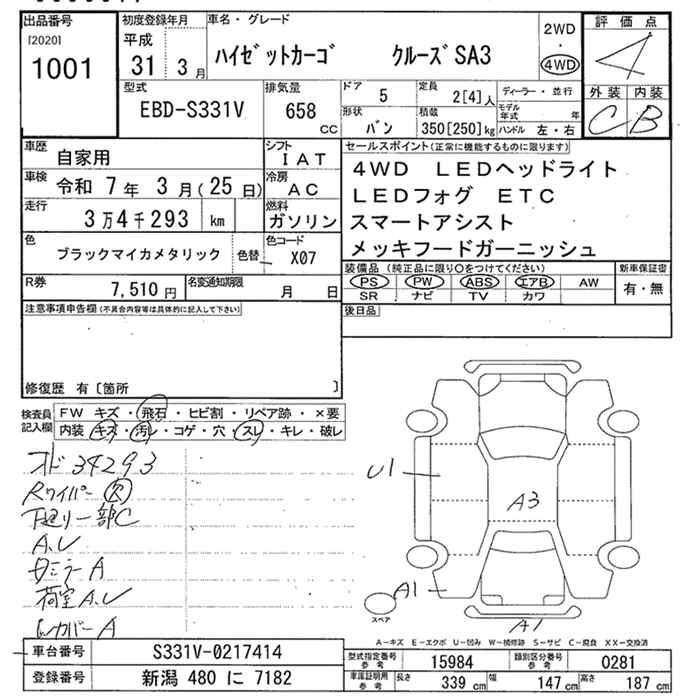 出品番号
[2020]
1001
初度登録年月
平成
31 3月
車名・グレード
ハイゼットカーゴ クルーズSA3
2WD
・
4WD
評価点
4
外装 内装
C B
型式
EBD-S331V
排気量
658
cc
ドア 5
定員 2[4]人
ディーラー・並行
形状 バン
積載 350[250]kg
モデル年式 年
ハンドル 左・右
車歴 自家用
シフト IAT
車検 令和 7年 3月(25日)
冷房 AC
走行 3万4千293 km
燃料 ガソリン
色 ブラックマイカメタリック 色替
色コード X07
R券 7,510円
名変通知期限 月 日
セールスポイント(正常に機能するものに限ります)
4WD LEDヘッドライト
LEDフォグ ETC
スマートアシスト
メッキフードガーニッシュ
装備品(純正品に限り○をつけてください)
PS PW ABS エアB AW
SR ナビ TV カワ
新車保証書
有・無
注意事項申告欄(不具合内容等は具体的に記入して下さい)
後日品
修復歴 有〔箇所 〕
検査員記入欄
FW キズ・飛石・ヒビ割・リペア跡・×要
内装・キズ・汚レ・コゲ・穴・スレ・キレ・破レ
オド34293
Rワイパー欠
下廻り一部C
A,U
Dミラー A
荷室A,U
Wカバー A
U1
A3
A1
A1
スペア
A-キズ E-エクボ U-凹み W-補修跡 S-サビ C-腐食 XX-交換済
車台番号 S331V-0217414
登録番号 新潟 480 に 7182
型式指定番号
参考
15984
類別区分番号
参考
0281
車庫証明用
参考
長さ 339cm 幅 147cm 高さ 187cm